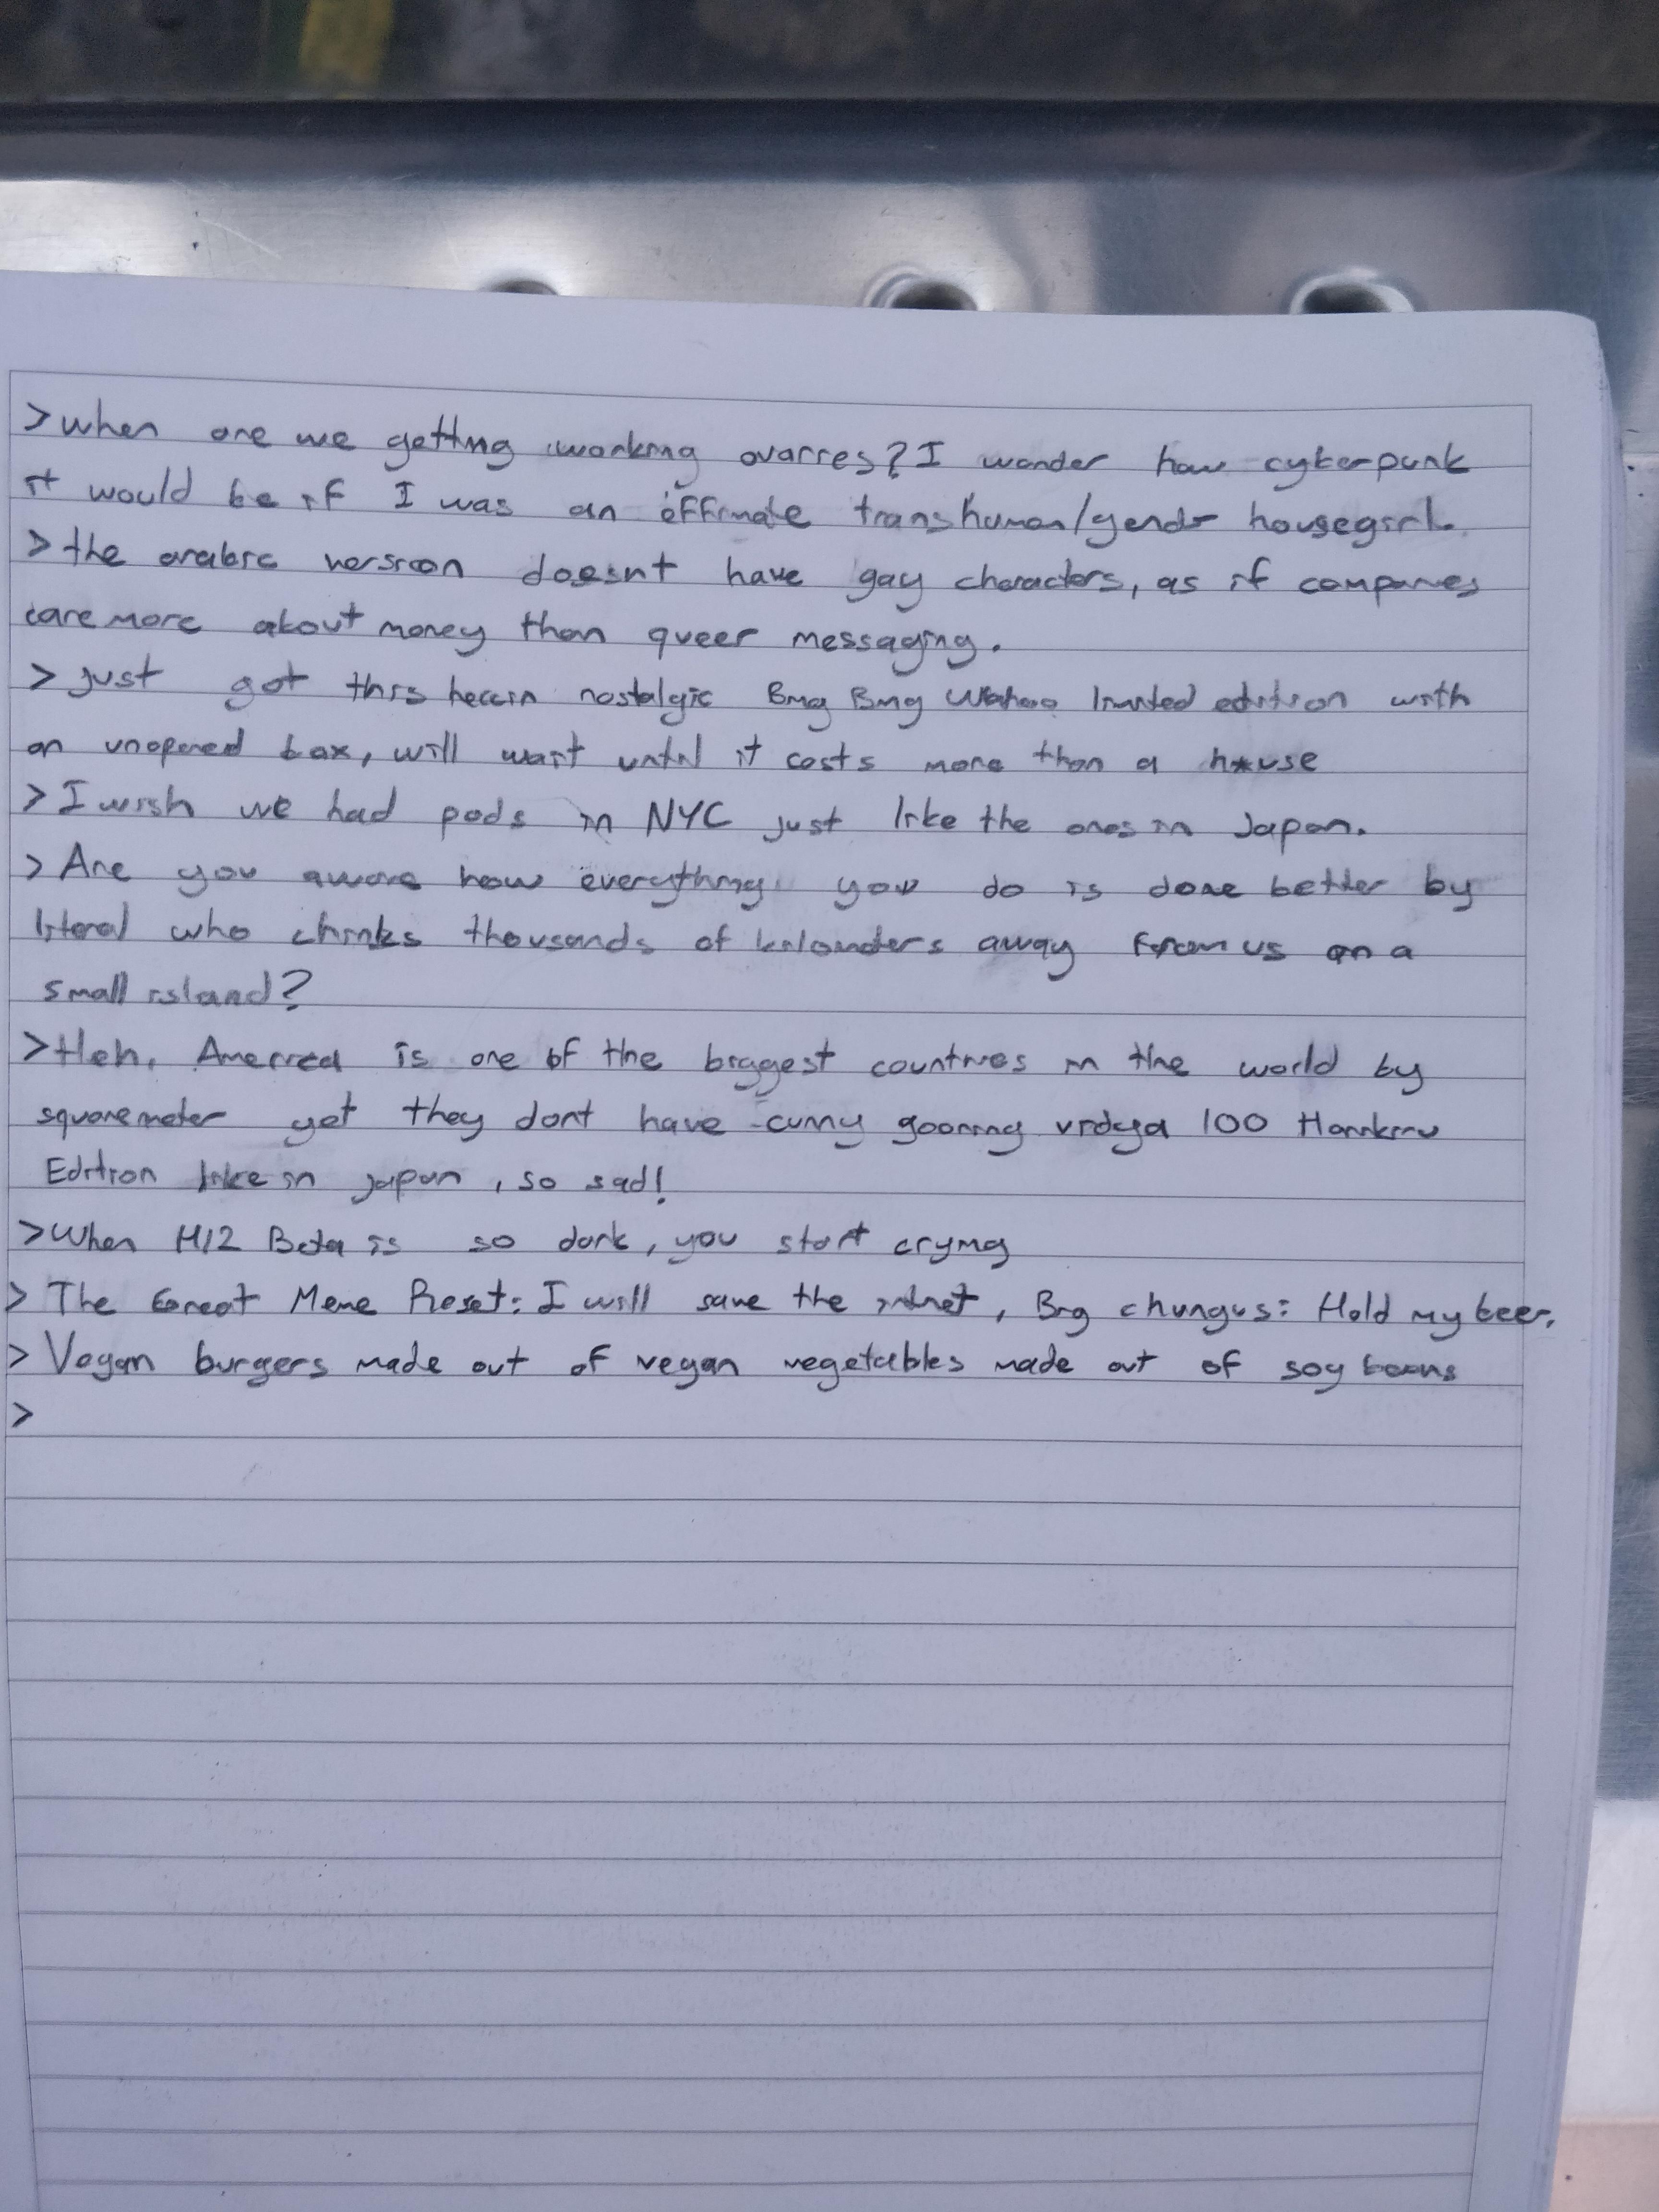 >when are we getting working ovaries? I wonder how cyberpunk
it would be if I was an effimate transhuman/gender housegirl.
>the arabic version doesnt have gay characters, as if companies
care more about money than queer messaging.
>just got this nostalgic Bing Bing Wahoo limited edition with
an unopened box, will wait until it costs more than a house
>I wish we had pods in NYC just like the ones in Japan.
>Are you aware how everything you do is done better by
literal who chinks thousands of away from us on a
small island?
>Heh, America is one of the biggest countries in the world by
squaremeter yet they dont have cunny gooning vidya 100
Edition like in japan, so sad!
>When Hl2 Beta is so dark, you start crying
>The Great Meme Reset: I will save the , Big chungus: Hold my beer.
>Vegan burgers made out of vegan vegetables made out of soy beans
>